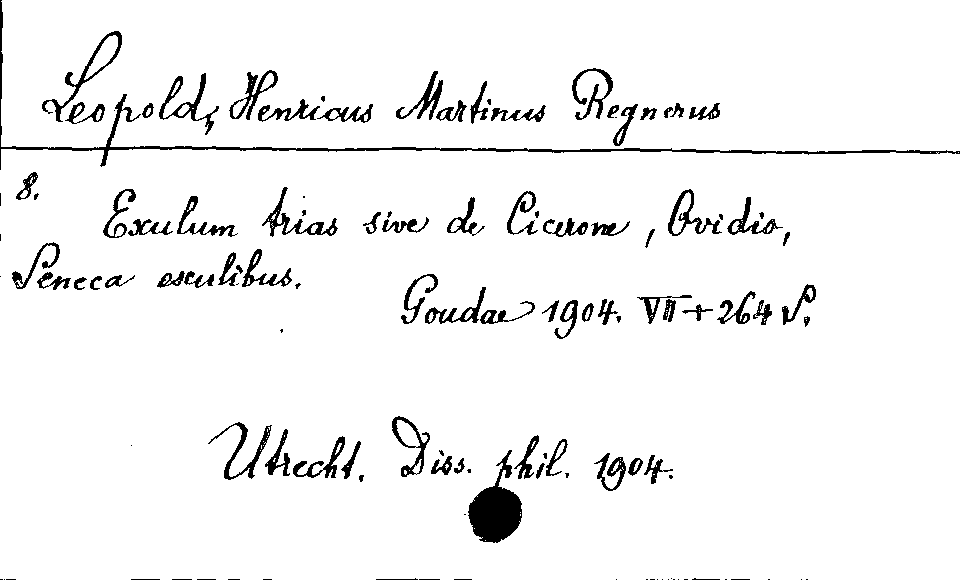 Leopold, Henricus Martinus Regnerus
8.
Exulum trias sive de Cicerone, Ovidio,
Seneca exulibus.
Goudae 1904. VII + 264 S.
Utrecht. Diss. phil. 1904.